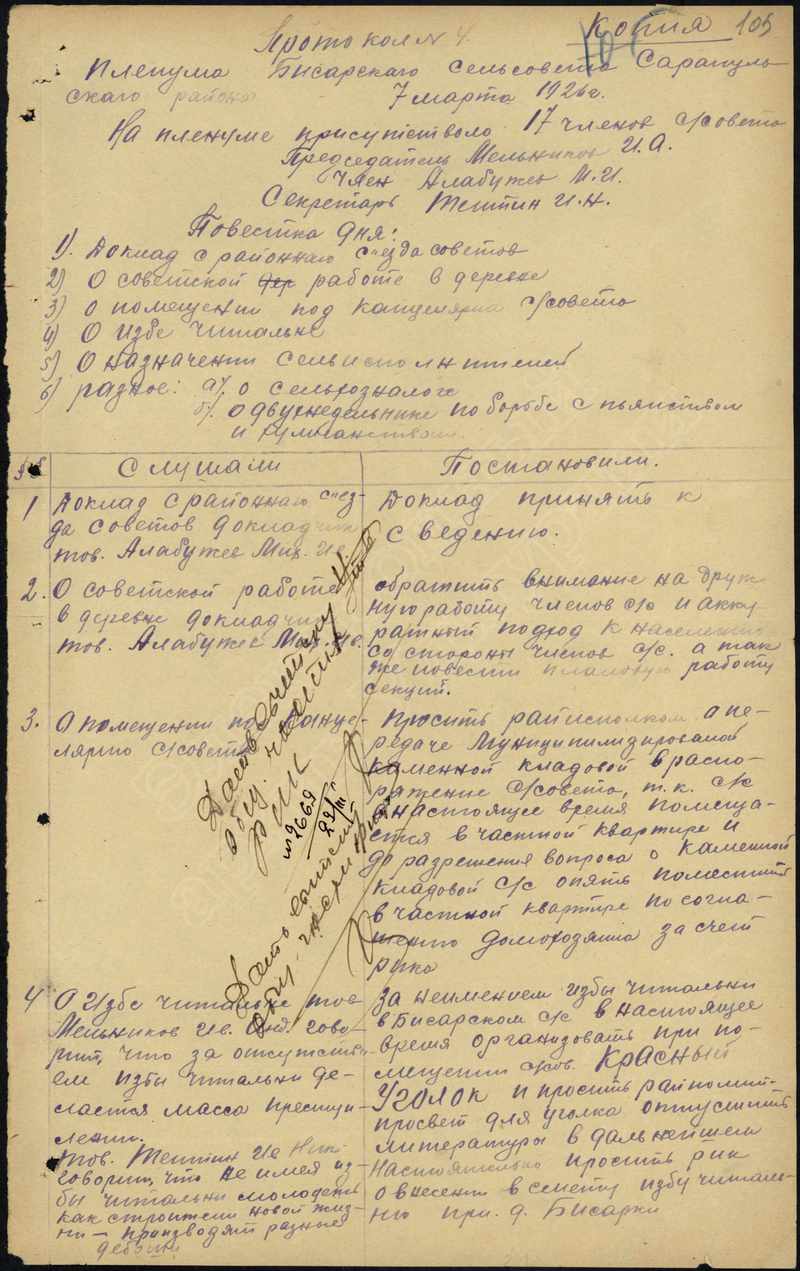 Копия 105
Протокол № 4.
Пленума Бисарскаго сельсовета Сарапуль-
скаго района 7 марта 1926 г.
На пленуме присутствовало 17 членов с/совета
Председатель Мельников И. А.
Член Алабужев М. И.
Секретарь Тептин И. Н.
Повестка дня:
1). Доклад с районнаго съезда советов
2) О советской дер работе в деревне
3) О помещении под канцелярию с/совета
4) О избе читальне
5) О назначении сельисполнителей
6) разное: а). о сельхозналоге
б). о двухнедельнике по борьбе с пьянством
и хулиганством.
Слушали
Постановили.
1 Доклад с районнаго съез-
да советов докладчик
тов. Алабужев Мих. Ив.
Доклад принять к
сведению.
2. О советской работе
в деревне докладчик
тов. Алабужев Мих. Ив.
обратить внимание на друж
ную работу членов с/с и акку
ратный подход к населению
со стороны членов с/с. а так
же повести плановую работу
секций.
3. О помещении под канце-
лярию с/совета
Просить райисполком о пе-
редаче Муниципилизированой
каменной кладовой в распо-
ряжение с/совета, т. к. с/с
в настоящее время помеща-
ется в частной квартире и
до разрешения вопроса о каменной
кладовой с/с опять поместить
в частной квартире по согла-
шению домохозяина за счет
рика
4 О Избе читальне тов.
Мельников Ив. Анд. гово-
рит, что за отсутстви-
ем избы читальни де-
лается масса преступ-
лений.
тов. Тептин Ив Ник
говорит, что не имея из-
бы читальни молодежь
как строители новой жиз-
ни — производят разные
дебоши
За неимением избы читальни
в Бисарском с/с в настоящее
время организовать при по-
мещении с/сов. КРАСНЫЙ
УГОЛОК и просить райполит-
просвет для уголка отпустить
литературы в дальнейшем
настоятельно просить рик
о внесении в смету избу читаль-
ню при. д. Бисарки
Дать выписку
общ. части
РИК
№ 2669
22/III
Дать выписку